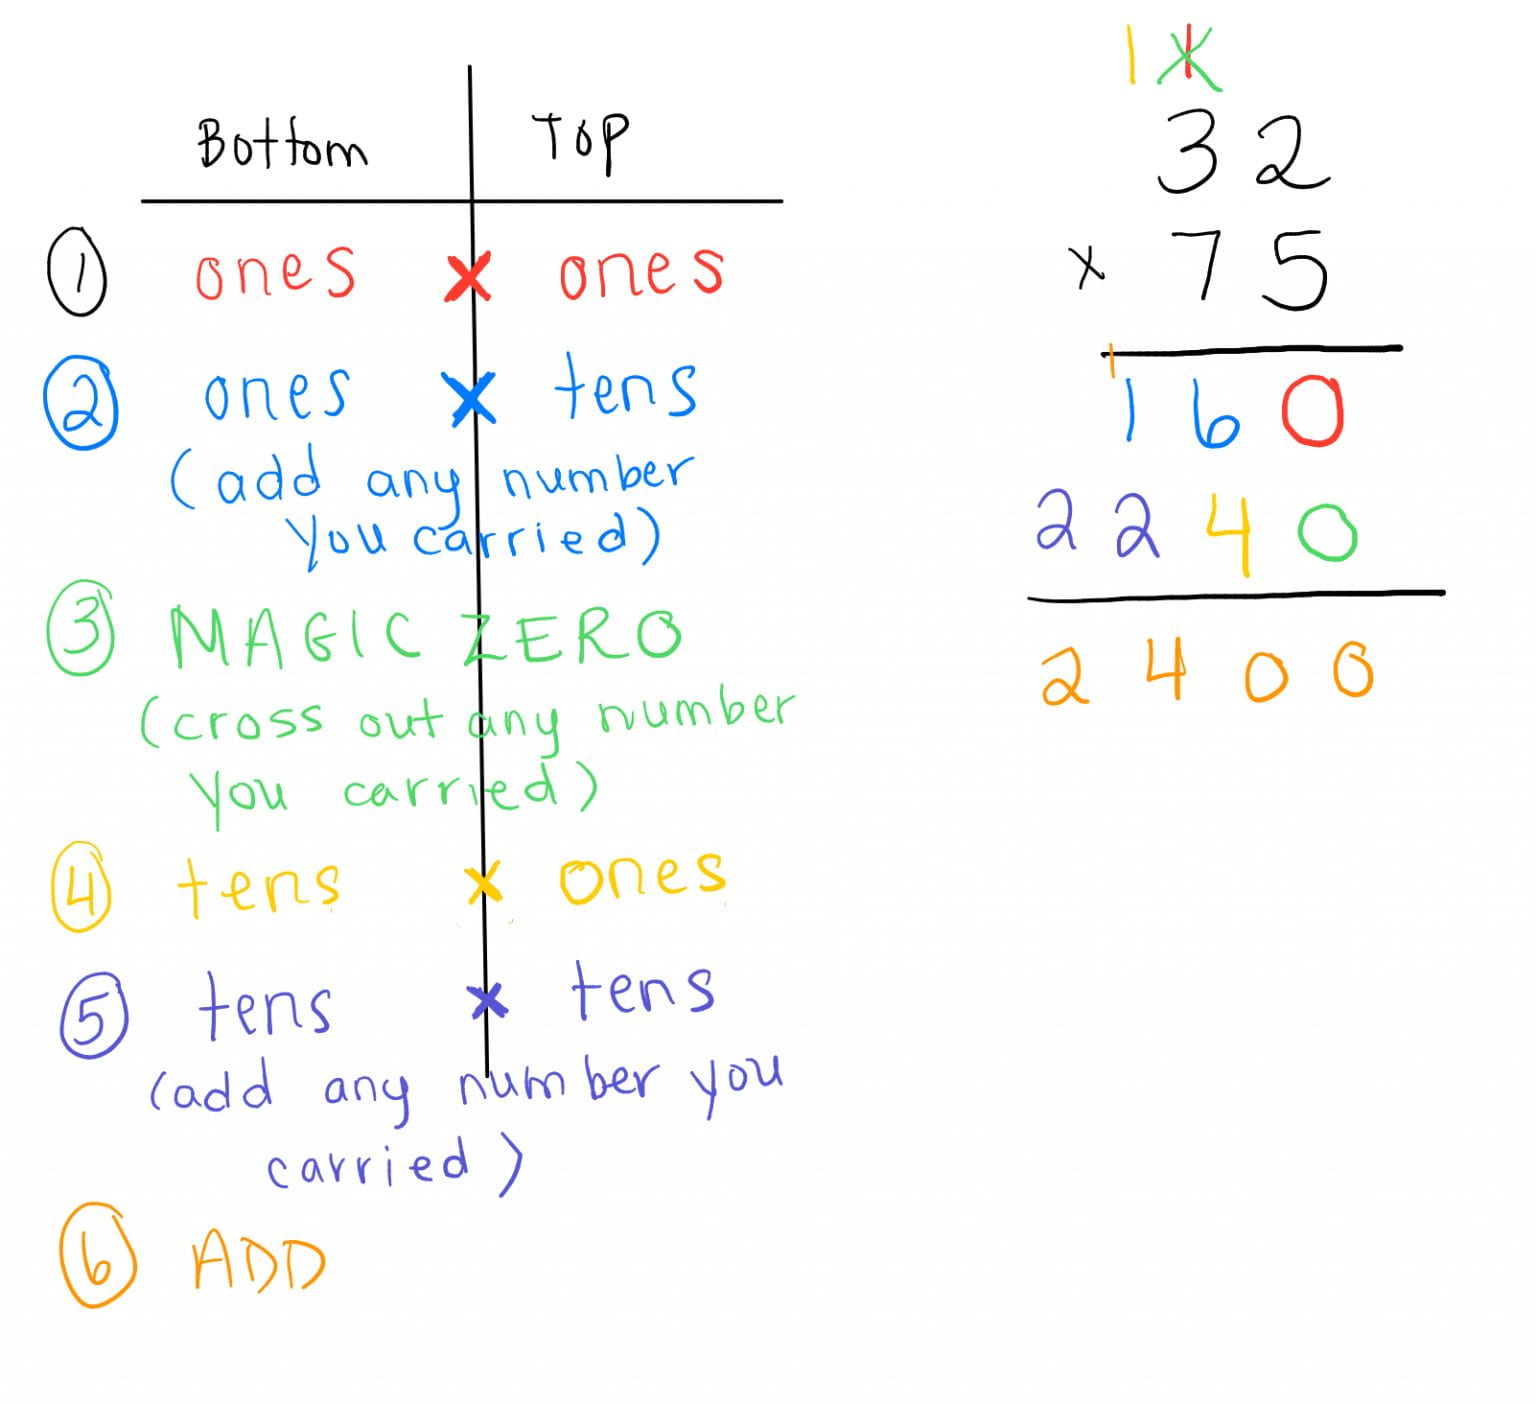 Bottom TOP
1 ones x ones
2 ones x tens
(add any number
you carried)
3 MAGIC ZERO
(cross out any number
you carried)
4 tens x ones
5 tens x tens
(add any number you
carried)
6 ADD
1 1
32
x 75
1
160
2240
2400